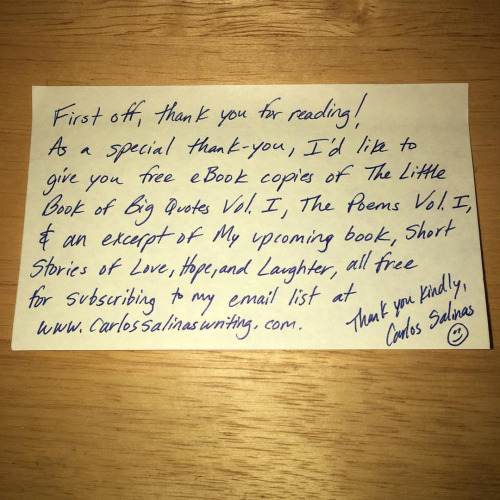 First off, thank you for reading!
As a special thank-you, I'd like to
give you free eBook copies of The Little
Book of Big Quotes Vol. I, The Poems Vol. I,
& an excerpt of My upcoming book, Short
Stories of Love, Hope, and Laughter, all free
for subscribing to my email list at
www.carlossalinaswriting.com.
Thank you kindly,
Carlos Salinas